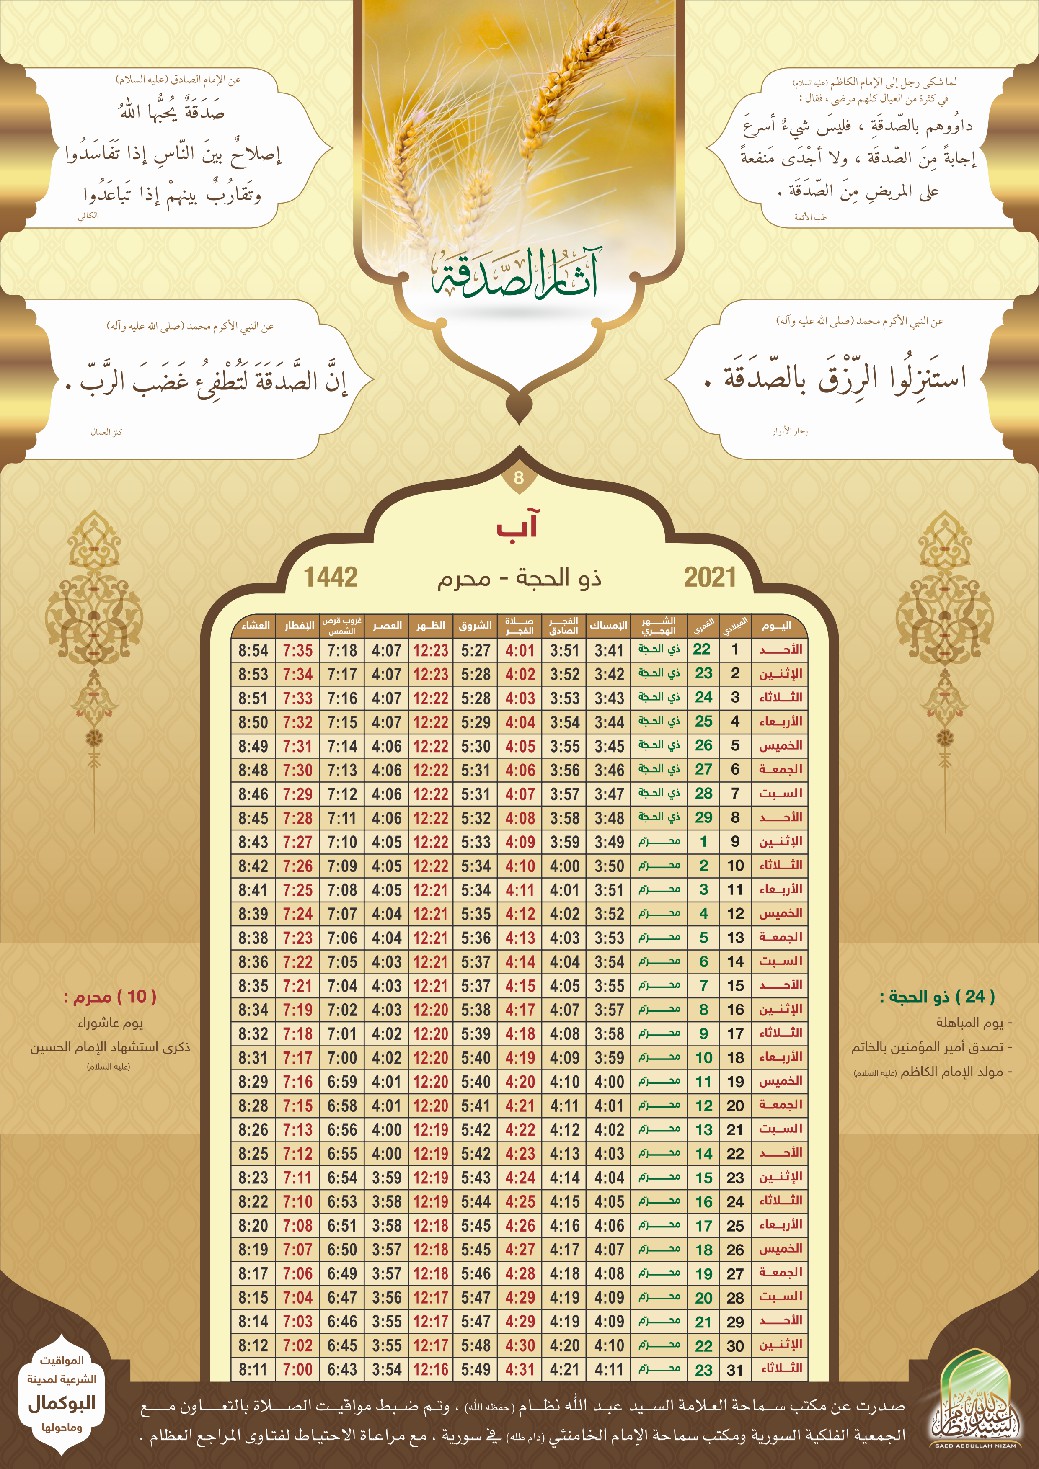 لما شكى رجل إلى الإمام الكاظم (عليه السلام)
في كثرة من العيال كلهم مرضى ، فقال :
داوُوهم بالصّدقَةِ ، فليسَ شيءٌ أسرعَ
إجابةً مِنَ الصّدقة ، ولا أجْدَى مَنفعةً
على المريضِ مِنَ الصّدَقَة .
طب الأئمة
عن الإمام الصادق (عليه السلام)
صَدَقَةٌ يُحبُّها اللهُ
إصلاحٌ بينَ النّاسِ إذا تَفَاسَدُوا
وتَقارُبٌ بينهمْ إذا تَباعَدُوا
الكافي
آثار الصّدقة
عن النبي الأكرم محمد (صلى الله عليه وآله)
استَنزِلُوا الرِّزْقَ بالصّدَقَة .
بحار الأنوار
عن النبي الأكرم محمد (صلى الله عليه وآله)
إنَّ الصَّدَقَةَ لَتُطْفِئُ غَضَبَ الرَّبّ .
كنز العمال
8
آب
2021 ذو الحجة - محرم 1442
اليـوم الميلادي القمري الشـهر الهجري الإمساك الفجـر الصادق صـلاة الفجـر الشروق الظـهر العصـر غروب قرص الشمس الإفطار العشاء
الأحـــد 1 22 ذي الحجة 3:41 3:51 4:01 5:27 12:23 4:07 7:18 7:35 8:54
الإثنـين 2 23 ذي الحجة 3:42 3:52 4:02 5:28 12:23 4:07 7:17 7:34 8:53
الثـلاثاء 3 24 ذي الحجة 3:43 3:53 4:03 5:28 12:22 4:07 7:16 7:33 8:51
الأربـعاء 4 25 ذي الحجة 3:44 3:54 4:04 5:29 12:22 4:07 7:15 7:32 8:50
الخميس 5 26 ذي الحجة 3:45 3:55 4:05 5:30 12:22 4:06 7:14 7:31 8:49
الجمعـة 6 27 ذي الحجة 3:46 3:56 4:06 5:31 12:22 4:06 7:13 7:30 8:48
السـبت 7 28 ذي الحجة 3:47 3:57 4:07 5:31 12:22 4:06 7:12 7:29 8:46
الأحـــد 8 29 ذي الحجة 3:48 3:58 4:08 5:32 12:22 4:06 7:11 7:28 8:45
الإثنـين 9 1 محـــرم 3:49 3:59 4:09 5:33 12:22 4:05 7:10 7:27 8:43
الثـلاثاء 10 2 محـــرم 3:50 4:00 4:10 5:34 12:22 4:05 7:09 7:26 8:42
الأربـعاء 11 3 محـــرم 3:51 4:01 4:11 5:34 12:21 4:05 7:08 7:25 8:41
الخميس 12 4 محـــرم 3:52 4:02 4:12 5:35 12:21 4:04 7:07 7:24 8:39
الجمعـة 13 5 محـــرم 3:53 4:03 4:13 5:36 12:21 4:04 7:06 7:23 8:38
السـبت 14 6 محـــرم 3:54 4:04 4:14 5:37 12:21 4:03 7:05 7:22 8:36
الأحـــد 15 7 محـــرم 3:55 4:05 4:15 5:37 12:21 4:03 7:04 7:21 8:35
الإثنـين 16 8 محـــرم 3:57 4:07 4:17 5:38 12:20 4:03 7:02 7:19 8:34
الثـلاثاء 17 9 محـــرم 3:58 4:08 4:18 5:39 12:20 4:02 7:01 7:18 8:32
الأربـعاء 18 10 محـــرم 3:59 4:09 4:19 5:40 12:20 4:02 7:00 7:17 8:31
الخميس 19 11 محـــرم 4:00 4:10 4:20 5:40 12:20 4:01 6:59 7:16 8:29
الجمعـة 20 12 محـــرم 4:01 4:11 4:21 5:41 12:20 4:01 6:58 7:15 8:28
السـبت 21 13 محـــرم 4:02 4:12 4:22 5:42 12:19 4:00 6:56 7:13 8:26
الأحـــد 22 14 محـــرم 4:03 4:13 4:23 5:42 12:19 4:00 6:55 7:12 8:25
الإثنـين 23 15 محـــرم 4:04 4:14 4:24 5:43 12:19 3:59 6:54 7:11 8:23
الثـلاثاء 24 16 محـــرم 4:05 4:15 4:25 5:44 12:19 3:58 6:53 7:10 8:22
الأربـعاء 25 17 محـــرم 4:06 4:16 4:26 5:45 12:18 3:58 6:51 7:08 8:20
الخميس 26 18 محـــرم 4:07 4:17 4:27 5:45 12:18 3:57 6:50 7:07 8:19
الجمعـة 27 19 محـــرم 4:08 4:18 4:28 5:46 12:18 3:57 6:49 7:06 8:17
السـبت 28 20 محـــرم 4:09 4:19 4:29 5:47 12:17 3:56 6:47 7:04 8:15
الأحـــد 29 21 محـــرم 4:09 4:19 4:29 5:47 12:17 3:55 6:46 7:03 8:14
الإثنـين 30 22 محـــرم 4:10 4:20 4:30 5:48 12:17 3:55 6:45 7:02 8:12
الثـلاثاء 31 23 محـــرم 4:11 4:21 4:31 5:49 12:16 3:54 6:43 7:00 8:11
( 24 ) ذو الحجة :
- يوم المباهلة
- تصدق أمير المؤمنين بالخاتم
- مولد الإمام الكاظم (عليه السلام)
( 10 ) محرم :
يوم عاشوراء
ذكرى استشهاد الإمام الحسين
(عليه السلام)
صدرت عن مكتب سماحة العلامة السيد عبد الله نظـام (حفظه الله) ، وتم ضبـط مواقيـت الصـلاة بالتعـاون مـع
الجمعية الفلكية السورية ومكتب سماحة الإمام الخامنئي (دام ظله) في سورية ، مع مراعاة الاحتياط لفتاوى المراجع العظام .
المواقيت
الشرعية لمدينة
البوكمال
وماحولها
السيد عبد الله نظام
SAED ABDULLAH NIZAM